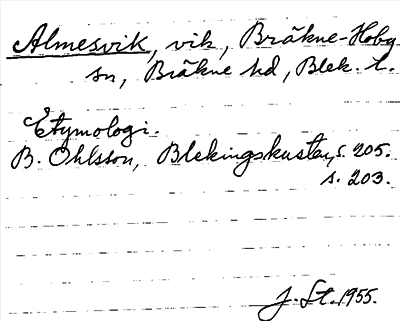 Almesvik, vik, Bräkne-Hoby
sn, Bräkne hd, Blek. l.
Etymologi.
B. Ohlsson, Blekingskusten, s. 205.
s. 203.
J. St. 1955.